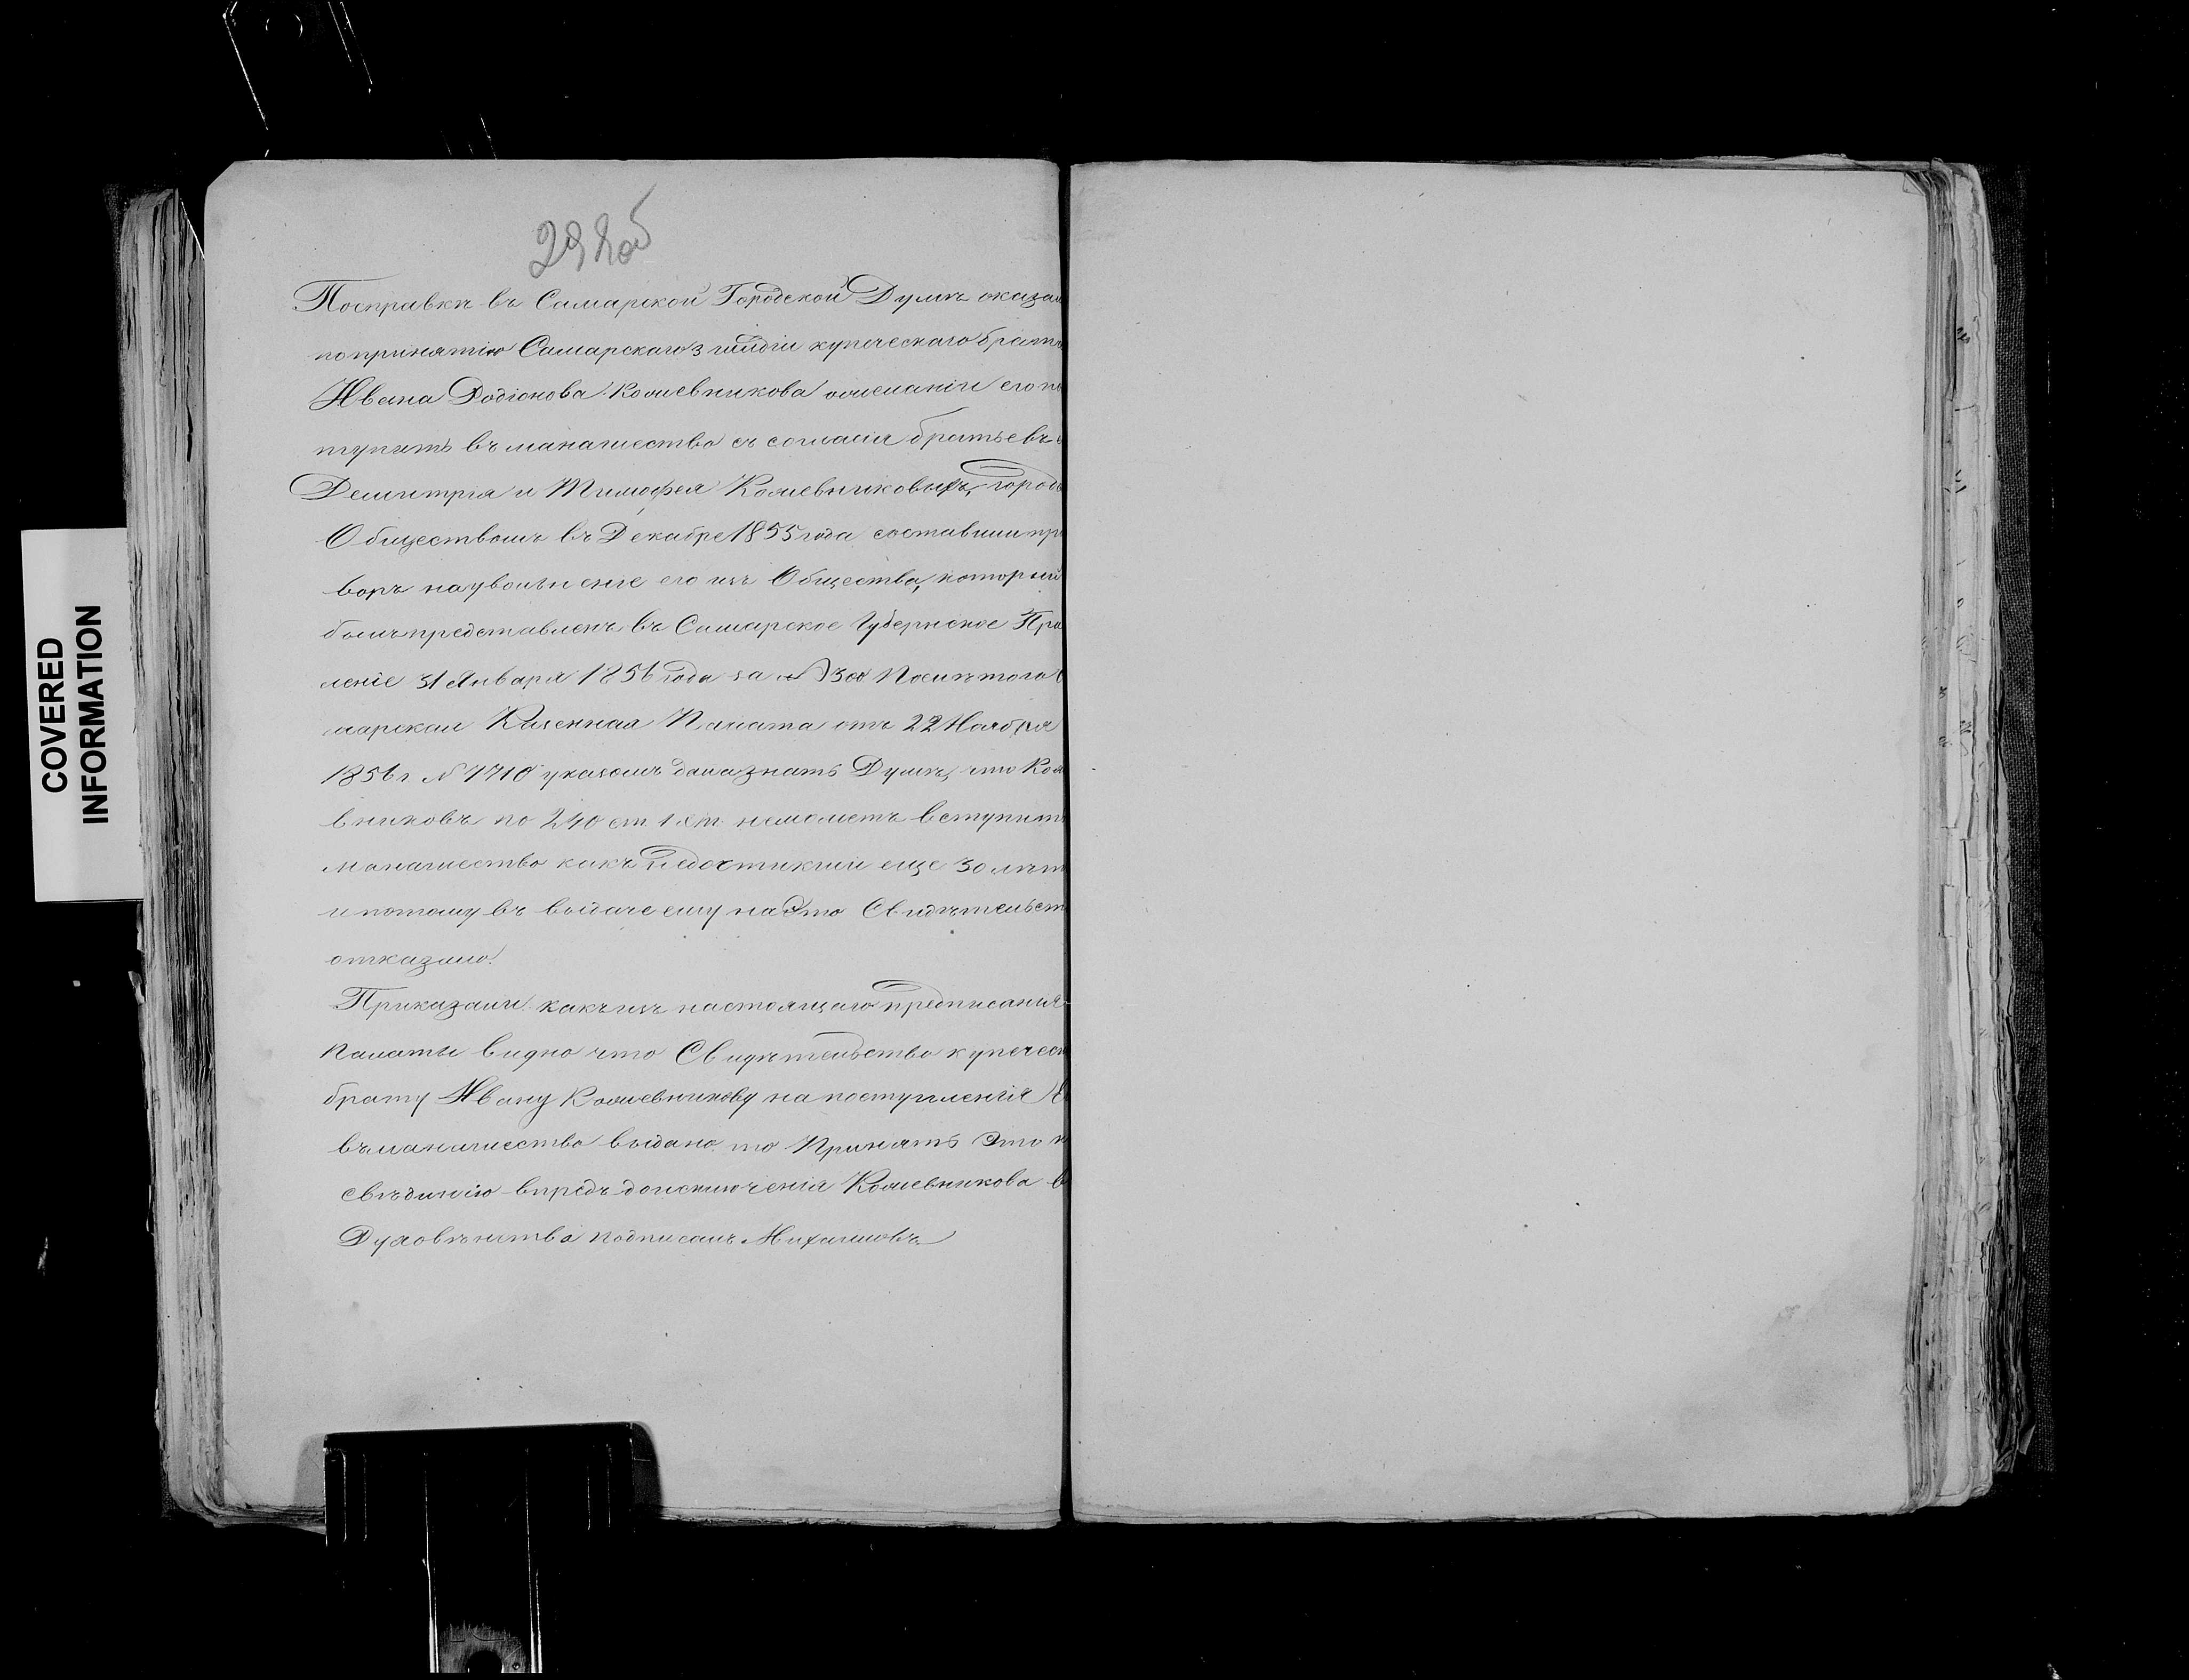 292об
Посправкѣ въ Самарской Городской Думѣ оказал
попринятію Самарскаго 3 гилдіи купеческаго брата
Ивана Родіонова Кожевникова ожеланіи его по
тупить въ манашество съ согласія братьевъ е
Демитрія и Тимофея Кожевниковыхъ, городс
Обществомъ въ Декабре 1855 года составили при
воръ наувольненіе его изъ Общества, который
былъ представленъ въ Самарское Губернское Пра
леніе 31 Января 1856 года за № 300 Послѣ того С
марская Казенная Палата отъ 22 Ноября
1856 г № 7710 указомъ дала знать Думѣ, что Кож
вниковъ по 240 ст 1 хт. неможетъ вступить
манашество какъ недостикшій еще 30 лѣтъ
и потому въ выдаче ему на Это Свидѣтельст
отказано.
Приказали какъ изъ настоящаго предписанія
Палаты видно что Свидѣтельство купеческ
брату Ивану Кожевникову на поступленія
въ манашество выдано. то Принять Это к
свѣдинію впредъ доисключенія Кожевникова в
Духовѣнства подписалъ Михаиловъ
COVERED
INFORMATION